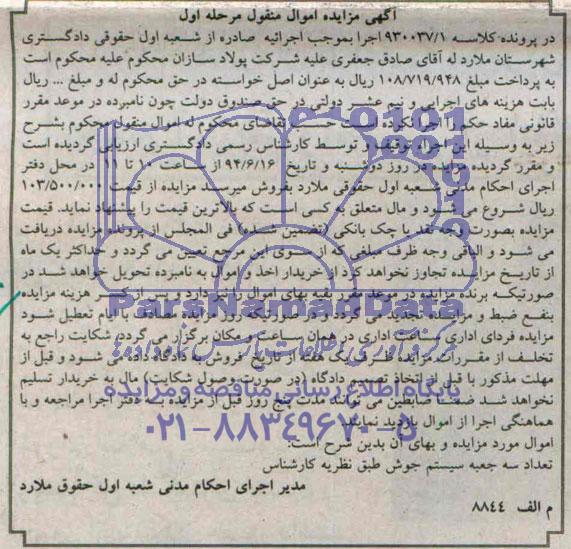 آگهی مزایده اموال منقول مرحله اول
در پرونده کلاسه ۹۳۰۰۳۷/۱ اجرا بموجب اجرائیه صادره از شعبه اول حقوقی دادگستری
شهرستان ملارد له آقای صادق جعفری علیه شرکت پولاد سازان محکوم علیه محکوم است
به پرداخت مبلغ ۱۰۸/۷۱۹/۹۴۸ ریال به عنوان اصل خواسته در حق محکوم له و مبلغ ... ریال
بابت هزینه های اجرایی و نیم عشر دولتی در حق صندوق دولت چون نامبرده در موعد مقرر
قانونی مفاد حکم را اجرا نکرده است حسب تقاضای محکوم له اموال منقول محکوم بشرح
زیر به وسیله این اجرا توقیف و توسط کارشناس رسمی دادگستری ارزیابی گردیده است
و مقرر گردیده مزایده در روز دوشنبه و تاریخ ۹۴/۶/۱۶ از ساعت ۱۰ تا ۱۱ در محل دفتر
اجرای احکام مدنی شعبه اول حقوقی ملارد بفروش میرسد مزایده از قیمت ۱۰۳/۵۰۰/۰۰۰
ریال شروع می شود و مال متعلق به کسی است که بالاترین قیمت را پیشنهاد نماید. قیمت
مزایده بصورت وجه نقد یا چک بانکی (تضمین شده) فی المجلس از برنده مزایده دریافت
می شود و الباقی وجه ظرف مبلغی که از سوی این مرجع تعیین می گردد و حداکثر یک ماه
از تاریخ مزایده تجاوز نخواهد کرد از خریدار اخذ و اموال به نامبرده تحویل خواهد شد در
صورتیکه برنده مزایده در موعد مقرر بقیه بهای اموال را نپردازد و پس از کسر هزینه مزایده
بنفع ضبط و مزایده تجدید می گردد و در صورتیکه روز مزایده مصادف با ایام تعطیل شود
مزایده فردای اداری ساعت اداری در همان ساعت و مکان برگزار می گردد شکایت راجع به
تخلف از مقررات مزایده ظرف یک هفته از تاریخ فروش به دادگاه داده می شود و قبل از
مهلت مذکور یا قبل از اتخاذ تصمیم دادگاه (در صورت وصول شکایت) مال به خریدار تسلیم
نخواهد شد ضمنا می توانند مدت پنج روز قبل از مزایده به دفتر اجرا مراجعه و با
هماهنگی اجرا از اموال بازدید نمایند.
اموال مورد مزایده و بهای آن بدین شرح است:
تعداد سه جعبه سیستم جوش طبق نظریه کارشناس
مدیر اجرای احکام مدنی شعبه اول حقوق ملارد
م الف ۸۸۴۴
ParsNamadData
پایگاه اطلاع رسانی مناقصه و مزایده
۰۲۱-۸۸۳۴۹۶۷۰-۵